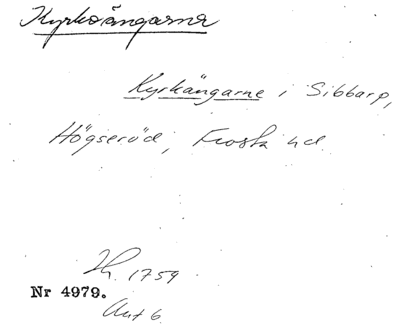 Kyrkoängarna
Kyrkängarne i Sibbarp,
Högseröd, Frosta hd.
Lh. 1759
Nr 4979.
Akt 6